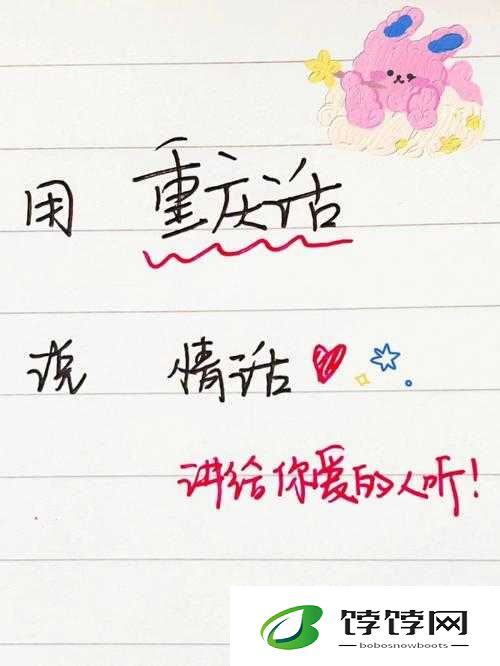 用 重庆话
说 情话
讲给你爱的人听！
饽饽网
bobosnowboots